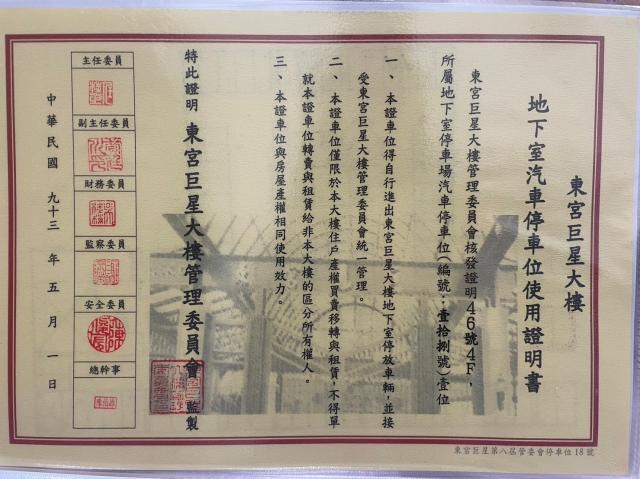 東宮巨星大樓
地下室汽車停車位使用證明書
東宮巨星大樓管理委員會核發證明46號4F，
所屬地下室停車場汽車停車位(編號：壹拾捌號)壹位
一、本證車位得自行進出東宮巨星大樓地下室停放車輛，並接
受東宮巨星大樓管理委員會統一管理。
二、本證車位僅限於本大樓住戶產權買賣移轉與租賃，不得單
就本證車位轉賣與租賃給非本大樓的區分所有權人。
三、本證車位與房屋產權相同使用效力。
特此證明 東宮巨星大樓管理委員會 監製
主任委員
副主任委員
財務委員
監察委員
安全委員
總幹事
中華民國 九十三 年 五 月 一 日
東宮巨星第八屆管委會停車位18號